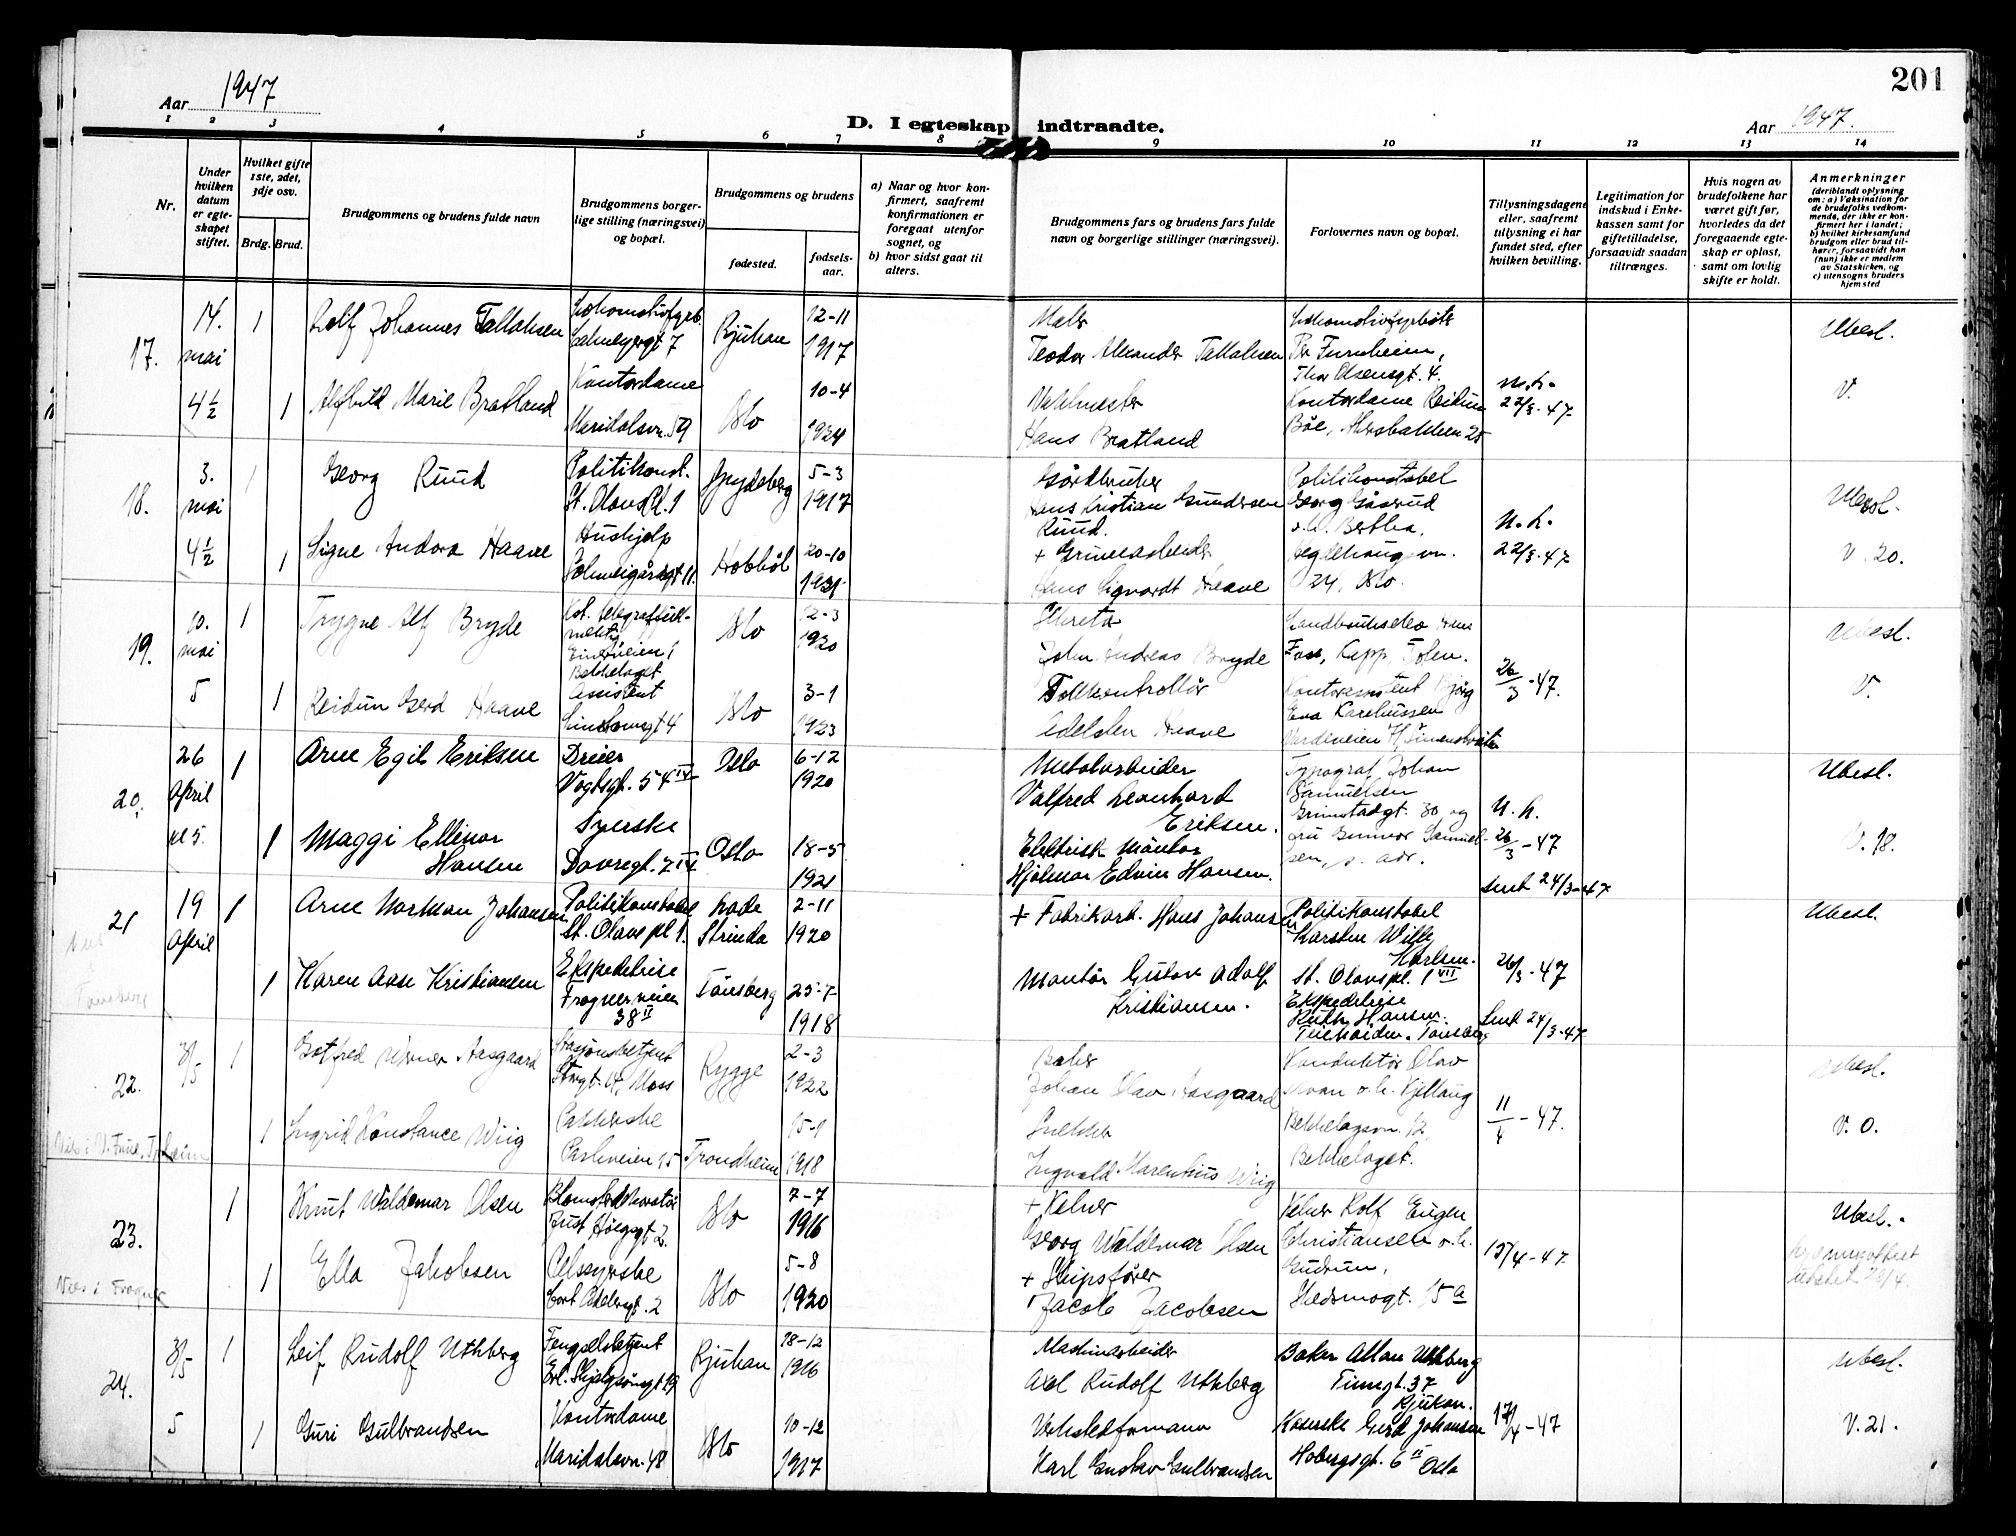 201
Aar 1947
D. I egteskap indtraadte.
Aar 1947.
1 2 3 4 5 6 7 8 9 10 11 12 13 14
Nr.
Under hvilken datum er egteskapet stiftet.
Hvilket gifte 1ste, 2det, 3dje osv.
Brdg. Brud.
Brudgommens og brudens fulde navn
Brudgommens borgerlige stilling (næringsvei) og bopæl.
Brudgommens og brudens
fødested.
fødselsaar.
a) Naar og hvor konfirmert, saafremt konfirmationen er foregaat utenfor sognet, og
b) hvor sidst gaat til alters.
Brudgommens fars og brudens fars fulde navn og borgerlige stillinger (næringsvei).
Forlovernes navn og bopæl.
Tillysningsdagene eller, saafremt tillysning ei har fundet sted, efter hvilken bevilling.
Legitimation for indskud i Enkekassen samt for giftetilladelse, forsaavidt saadan tiltrænges.
Hvis nogen av brudefolkene har været gift før, hvorledes da det foregaaende egteskap er opløst, samt om lovlig skifte er holdt.
Anmerkninger
(deriblandt oplysning om: a) Vaksination for de brudefolks vedkommende, der ikke er konfirmert her i landet; b) hvilket kirkesamfund brudgom eller brud tilhører, forsaavidt han (hun) ikke er medlem av Statskirken, og c) utensogns bruders hjemsted
17.
14. mai 4½
1
Rolf Johannes Tallaksen
7
Rjukan
12-11 1917
Maler
Teodor Alexander Tallaksen
Per Furuheim,
Thor Olsensgt. 4.
Ubesl.
1
Alfhild Marie Bratland
Kontordame
Maridalsvn. 59
Oslo
10-4 1924
Vaktmester
Hans Bratland
Kontordame Reidun
Bøe,
22/3-47
V.
18.
3. mai 4½
1
Georg Ruud
Politikonst.
St. Olavs Pl. 1
Spydeberg
5-3 1917
Gårdbruker
Hans Kristian Gundersen
Ruud.
Politikonstabel
Georg Gåsrud
Ubesl.
1
Signe Andora Haave
Hushjelp
Hobbøl
20-10 1921
+ Gruvearbeider
Hans Sigvardt Haave
Hegdehaugsvn.
24, Oslo.
22/3-47
V. 20.
19.
10. mai 5
1
Trygve Alf Bryde
Oslo
12-3 1920
John Andreas Bryde
Kapp, Toten.
26/3-47.
Ubesl.
1
Reidun Gerd Haave
Assistent
Oslo
3-1 1923
Tollkontrollør
Adelsten Haave
Eva Kareliussen
V.
20.
26 April kl 5.
1
Arne Egil Eriksen
Dreier
Vogtsgt. 54 IV
Oslo
6-12 1920
Metalarbeider
Valfred Leonhard
Eriksen.
Typograf Johan
Samuelsen
Grimstadgt. 30 og
Ubesl.
1
Maggi Ellinor
Hansen
Syerske
Dovregt. 7 IV
Oslo
18-5 1921
Elektrisk Montør
Hjalmar Edvin Hansen.
fru Gunvor Samuelsen, s. adr.
26/3-47
V. 18.
21
19 April
1
Arne Norman Johansen
Politikonstabel
St. Olavs pl 1.
Lade
Strinda
2-11 1920
+ Fabrikarb. Hans Johansen
Politikonstabel
Karsten Willy
Karlsen.
St. Olavs pl. 1 VII
Sendt 24/3-47
Ubesl.
1
Karen Aase Kristiansen
Ekspeditrise
Frognerveien
38 II
Tønsberg
23-7 1918
Montør Gustav Adolf
Kristiansen.
Ekspeditrise
Ruth Hansen.
26/3-47
Sendt 24/3-47
22.
3/5
1
Gotfred Werner Aasgaard
Stasjonsbetjent
Moss
Rygge
2-3 1922
Baker
Johan Olav Aasgaard
Konduktør Olav
Ubesl.
1
Ingrid Konstance Wiig
Pakkerske
Parkveien 15
Trondheim
15-1 1918
Snekker
Ingvald Marentius Wiig
Bekkelagsvn. 12,
Bekkelaget.
11/4-47.
V. O.
23.
1
Knut Waldemar Olsen
Oslo
7-7 1916
+ Kelner
Georg Waldemar Olsen
Kelner Rolf Eugen
Christiansen o. h.
Gudrun,
Hedsmogt. 15 a
15/4-47
Ubesl.
Viet i Frogner
1
Ella Jakobsen
Pelssyerske
Cort Adelersgt. 2
Oslo
5-8 1920
+ Skipsfører
Jacob Jacobsen
24.
3/5 5
1
Leif Rudolf Uthberg
Fengselsbetjent
Erl. Skjalgsønsgt 19
Rjukan
18-12 1916
Maskinarbeider
Axel Rudolf Uthberg
Baker Allan Uthberg
Tinngt. 37
Rjukan.
Ubesl.
1
Guri Gulbrandsen
Kontordame
Maridalsvn. 48
Oslo
10-12 1917
Verkstedformann
Karl Gustav Gulbrandsen
Gerd Johansen
Hobergsgt. 6 II Oslo
17/4-47
V. 21.